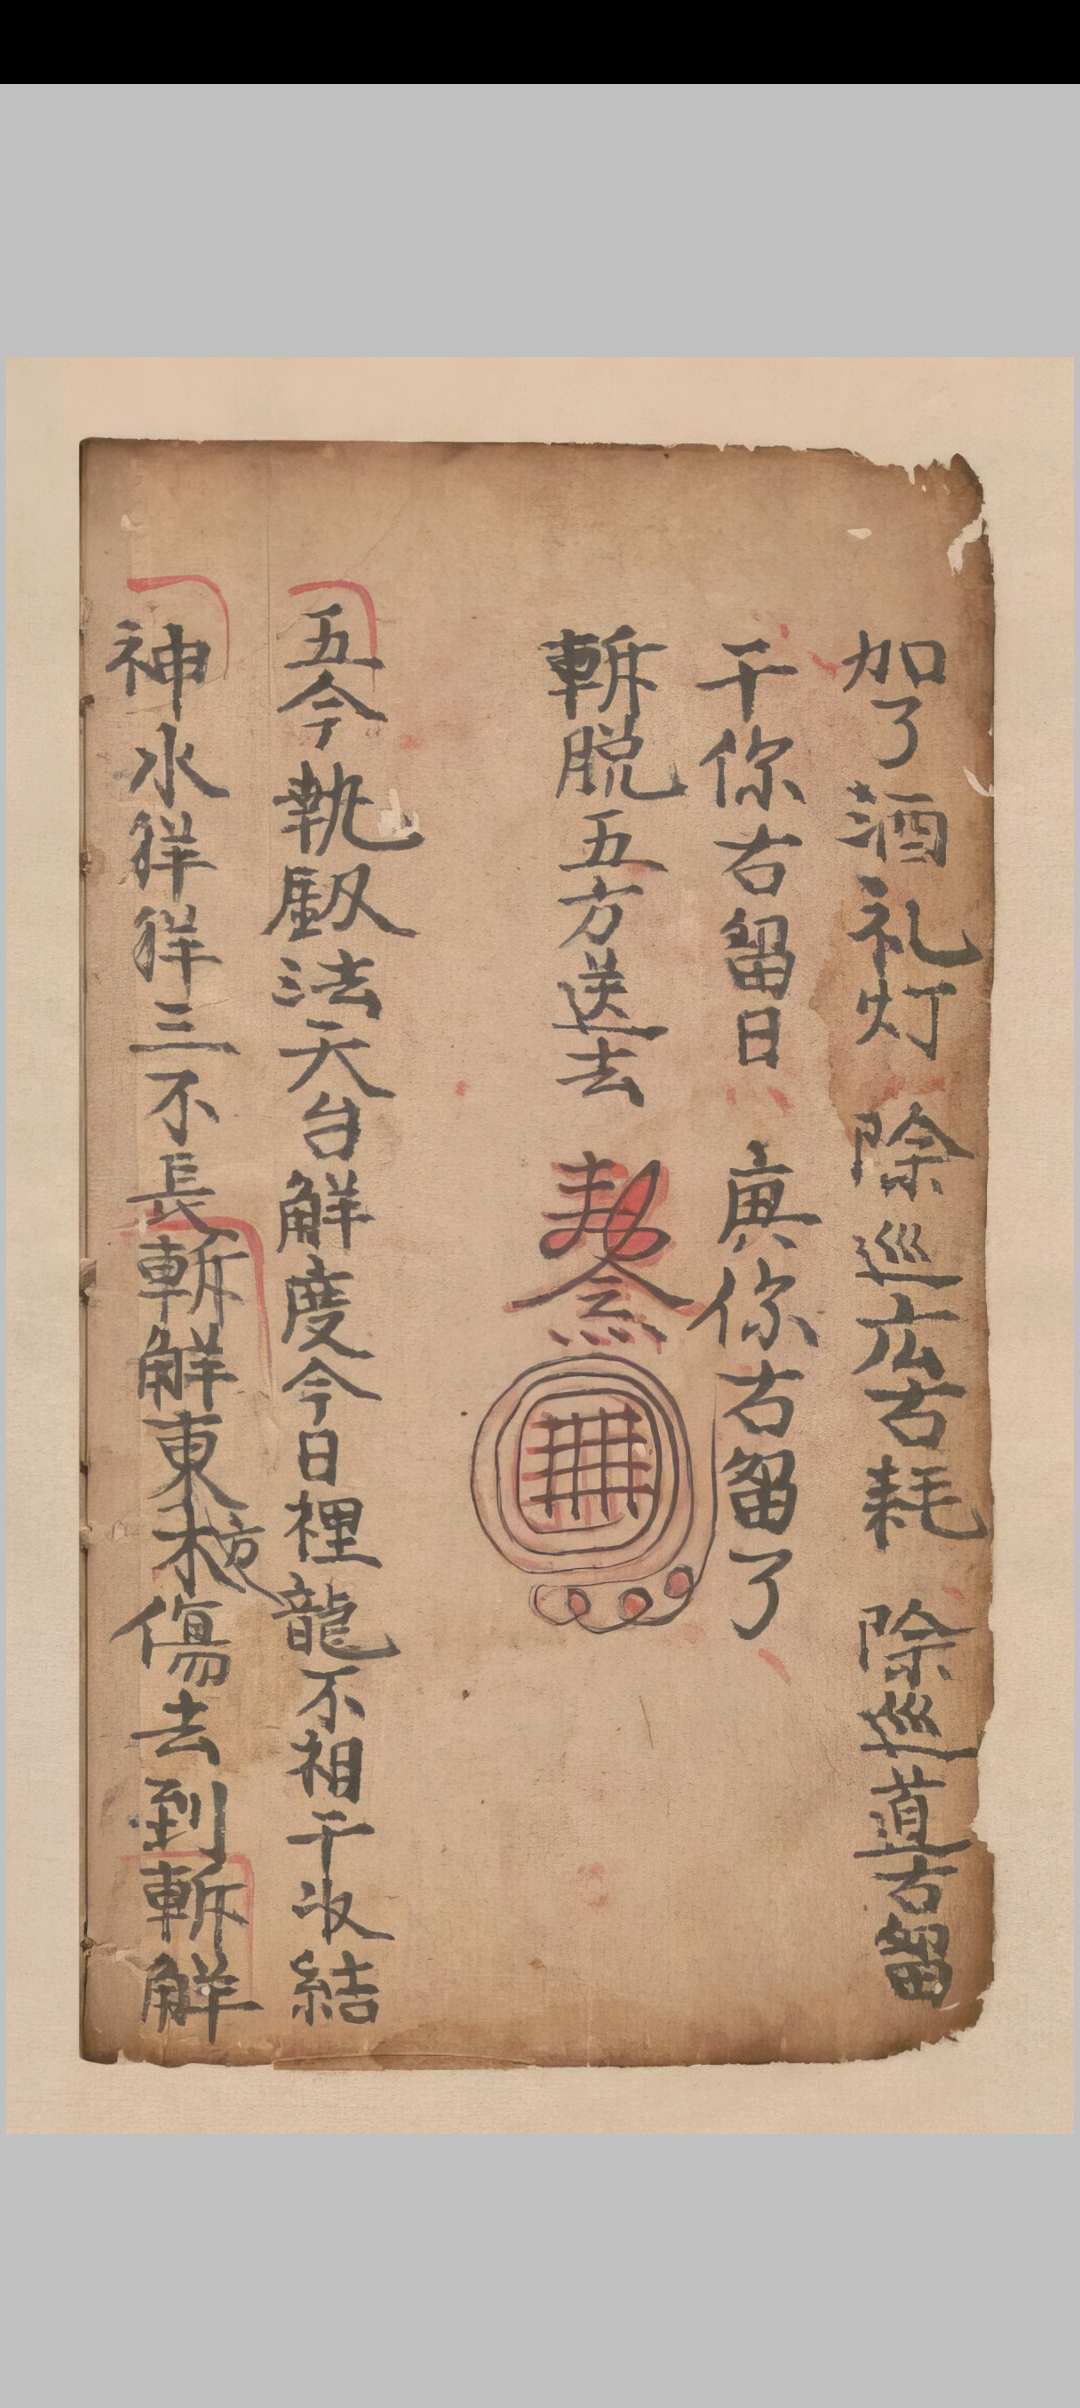 加了酒礼灯 除巡広古耗 除巡道右留
干你右留日 庚你右留了
斬脱五方送去
五令執釼法天台觧度今日裡龍不相干収結
神水洋洋三不長斬觧東方木傷去到斬觧